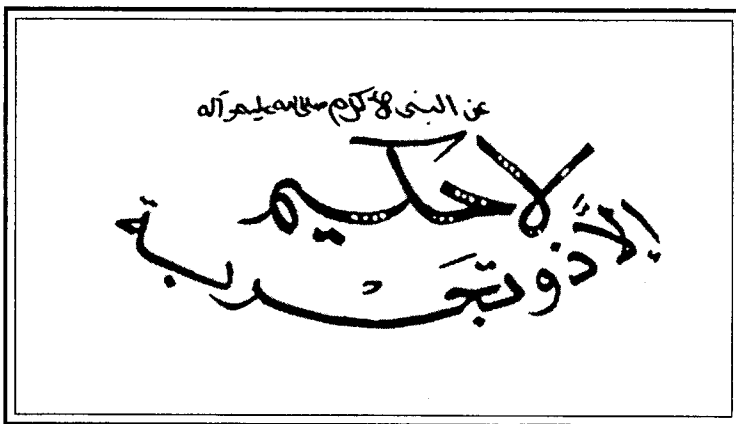 عن النبي الأكرم صلى الله عليه وآله
لا حكيم
إلاَّ ذو تَجْرِبة